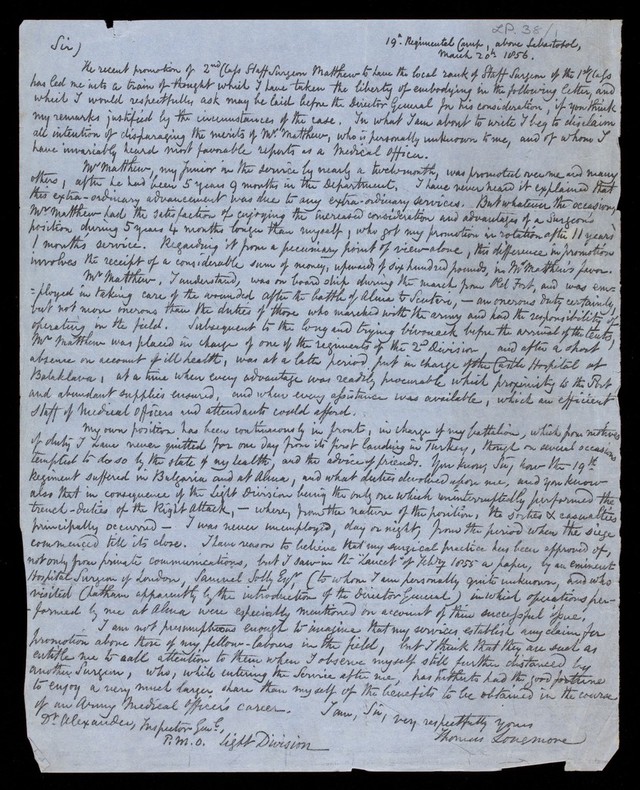 LP. 38/1
19th Regimental Camp, above Sebastopol,
March 20th 1856.
Sir,
The recent promotion of 2nd Class Staff Surgeon Matthew to have the local rank of Staff Surgeon of the 1st Class
has led me into a train of thought which I have taken the liberty of embodying in the following letter, and
which I would respectfully ask may be laid before the Director General for his consideration, if you think
my remarks justified by the circumstances of the case. In what I am about to write I beg to disclaim
all intention of disparaging the merits of Mr. Matthew, who is personally unknown to me, and of whom I
have invariably heard most favorable reports as a Medical Officer.
Mr. Matthew, my junior in the service by nearly a twelvemonth, was promoted over me and many
others, after he had been 5 years 9 months in the department. I have never heard it explained that
this extra-ordinary advancement was due to any extra-ordinary services. But whatever the occasion,
Mr. Matthew had the satisfaction of enjoying the increased consideration and advantages of a Surgeon's
position during 5 years 4 months longer than myself, who got my promotion in rotation after 11 years
1 months service. Regarding it from a pecuniary point of view alone, this difference in promotion
involves the receipt of a considerable sum of money, upwards of six hundred pounds, in Mr. Matthew's favor.
Mr. Matthew, I understand, was on board ship during the march from Old Fort, and was em-
-ployed in taking care of the wounded after the battle of Alma to Scutari, – an onerous duty certainly,
but not more onerous than the duties of those who marched with the army and had the responsibility of
operating on the field. Subsequent to the long and trying bivouack before the arrival of the tents,
Mr. Matthew was placed in charge of one of the regiments of the 2nd Division and after a short
absence on account of ill health, was at a later period put in charge of the Castle Hospital at
Balaklava, at a time when every advantage was readily procurable which proximity to the Port
and abundant supplies ensured, and when every assistance was available, which an efficient
staff of Medical Officers and attendants could afford.
My own position has been continuously in front, in charge of my battalion, which from motives
of duty I have never quitted for one day from its first landing in Turkey, though on several occasions
tempted to do so by the state of my health, and the advice of friends. You know, Sir, how the 19th
Regiment suffered in Bulgaria and at Alma, and what duties devolved upon me, and you know
also that in consequence of the Light Division being the only one which uninterruptedly performed the
trench-duties of the Right Attack, – where, from the nature of the position, the sorties & casualties
principally occurred – I was never unemployed, day or night, from the period when the siege
commenced till its close. I have reason to believe that my surgical practice has been approved of,
not only from private communications, but I saw in the "Lancet" of Febry 1855 a paper, by an eminent
Hospital Surgeon of London, Samuel Solly Esqr. (to whom I am personally quite unknown, and who
visited Chatham apparently by the introduction of the Director General) in which operations per-
-formed by me at Alma were especially mentioned on account of their successful issue.
I am not presumptuous enough to imagine that my services establish any claim for
promotion above those of my fellow-labours in the field, but I think that they are such as
entitle me to call attention to them when I observe myself still further distanced by
another Surgeon, who, while entering the Service after me, has hitherto had the good fortune
to enjoy a very much larger share than myself of the benefits to be obtained in the course
of an Army Medical Officer's career. I am, Sir, very respectfully yours
Dr. Alexander, Inspector Genl., Thomas Longmore
P.M.O. Light Division